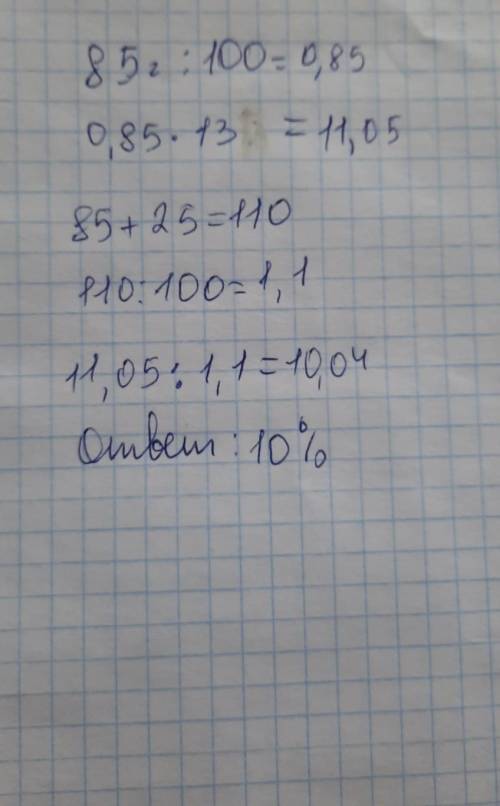 85г : 100 = 0,85
0,85 · 13 = 11,05
85 + 25 = 110
110 : 100 = 1,1
11,05 : 1,1 = 10,04
Ответ : 10%